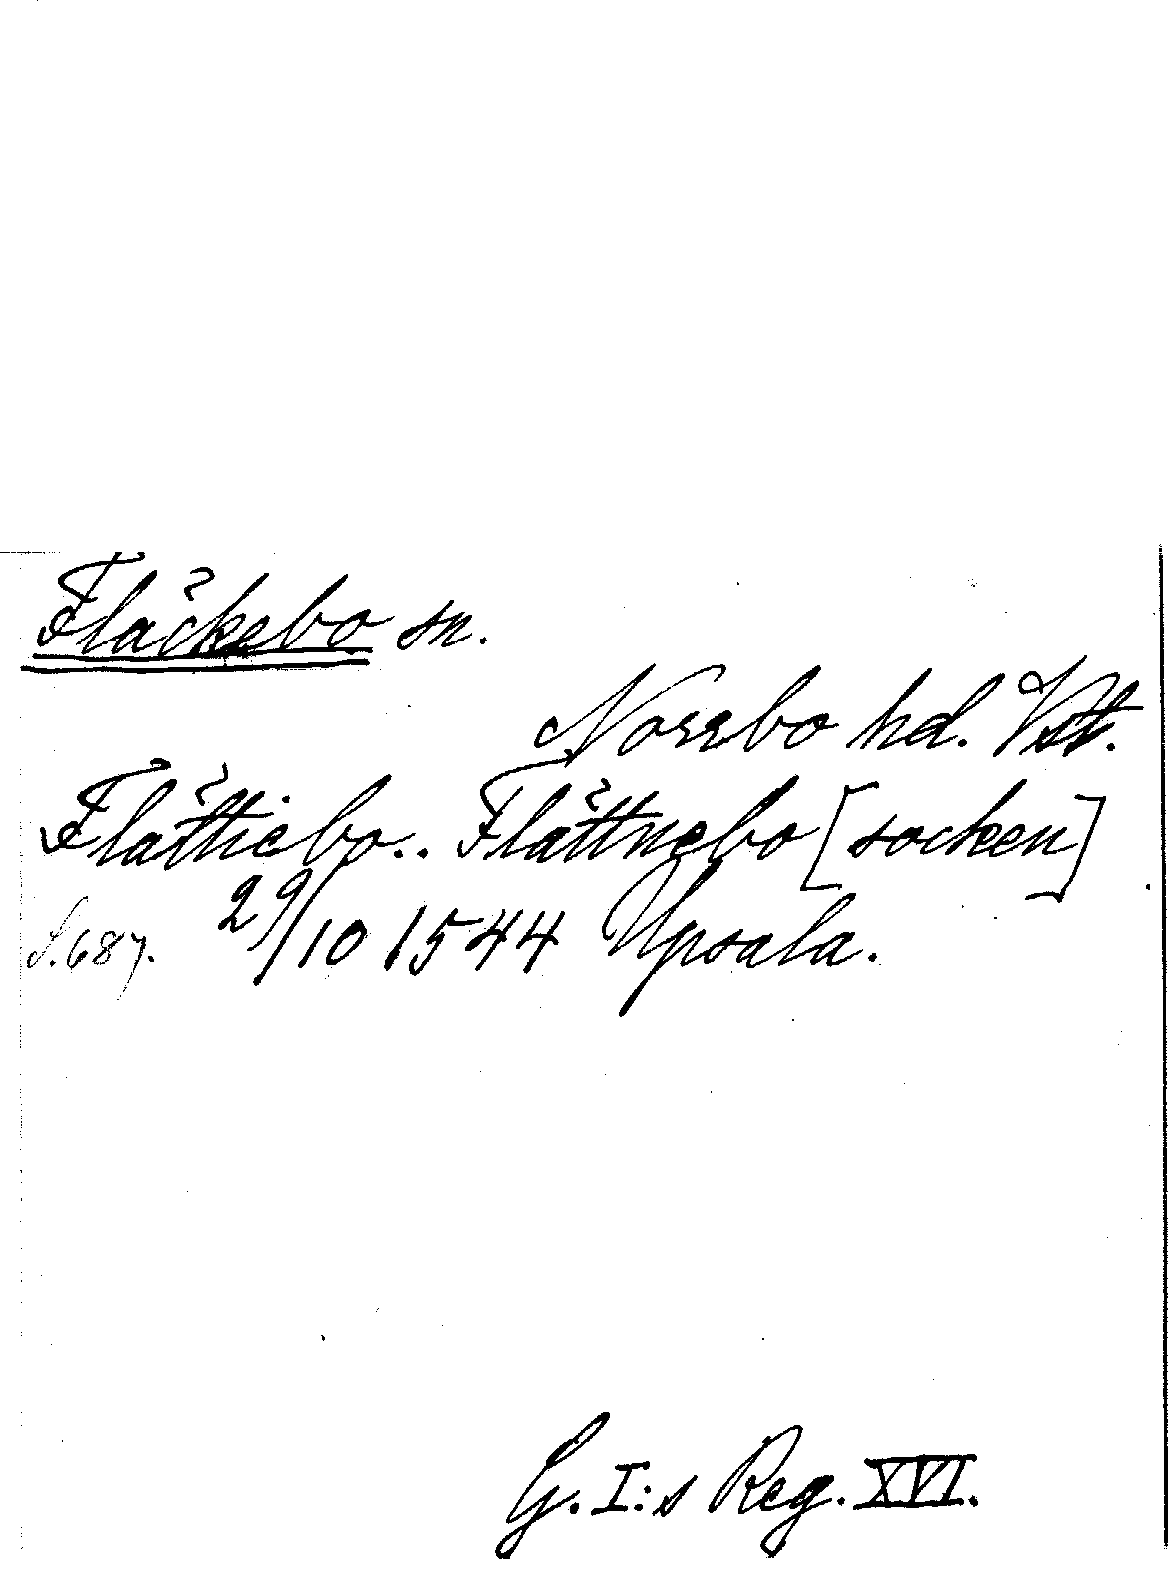 Fläckebo sn.
Norrbo hd. Vst.
Flättiebo.. Flättnebo [socken]
S. 687. 29/10 1544 Upsala.
G. I:s Reg. XVI.